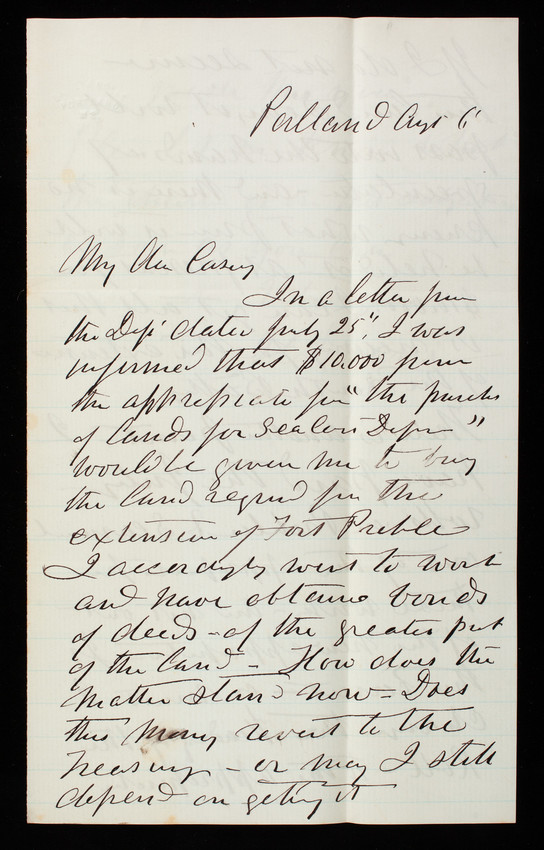 Portland Augt 6
My Dear Casey
In a letter from
the Dept dated July 25", I was
informed that $10,000 from
the appropriate for "the purchs
of Lands for Sea Coast Defen"
would be given me to buy
the Land reqred for the
extension of Fort Preble
I accordgly went to work
and have obtaind bonds
of deeds - of the greater part
of the Land - How does the
matter stand now - Does
this money revert to the
Treasury - or may I still
depend on getting it